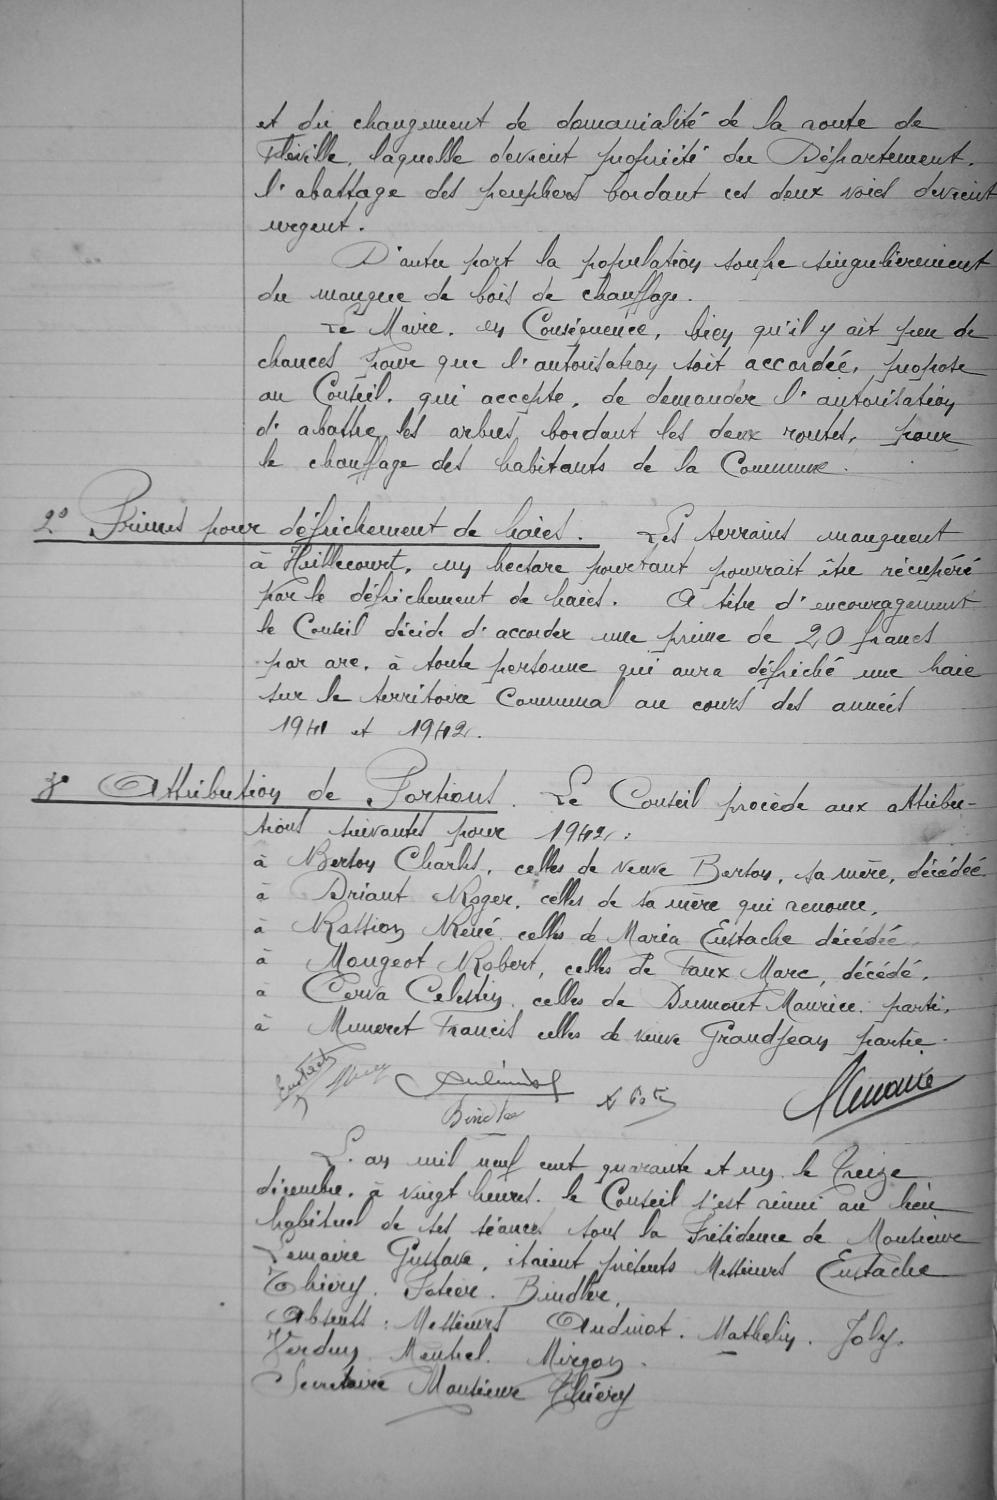 et du changement de domanialité de la route de
Fléville, laquelle devient propriété du Département.
l'abattage des peupliers bordant ces deux voies devient
urgent.
D'autre part la population souffre singulièrement
du manque de bois de chauffage.
Le Maire, en Conséquence, bien qu'il y ait peu de
chances pour que l'autorisation soit accordée, propose
au Conseil, qui accepte, de demander l'autorisation
d'abattre les arbres bordant les deux routes, pour
le chauffage des habitants de la Commune.
2° Primes pour défrichement de haies. Les terrains manquent
à Heillecourt, un hectare pourtant pourrait être récupéré
par le défrichement de haies. A titre d'encouragement
le Conseil décide d'accorder une prime de 20 francs
par are, à toute personne qui aura défriché une haie
sur le territoire Communal au cours des années
1941 et 1942.
3° Attribution de Portions. Le Conseil procède aux attribu-
tions suivantes pour 1942:
à Berton Charles, celles de veuve Berton, sa mère, décédée
à Driant Roger, celles de sa mère qui renonce,
à Rossion René celles de Maria Eustache décédée
à Mougeot Robert, celles de Faux Marc, décédé,
à Cerva Celestin celles de Dumont Maurice parti,
à Muneret Francis celles de veuve Grandjean partie.
Eustache Thiery Audinot
Bindler Potier Lemaire
L'an mil neuf cent quarante et un le Treize
décembre, à vingt heures, le Conseil s'est réuni au lieu
habituel de ses séances sous la Présidence de Monsieur
Lemaire Gustave, étaient présents Messieurs Eustache
Thiery. Potier. Bindler,
Absents: Messieurs Audinot. Mathelin. Joly.
Verdun. Meutrel. Mirgon.
Secretaire Monsieur Thiery